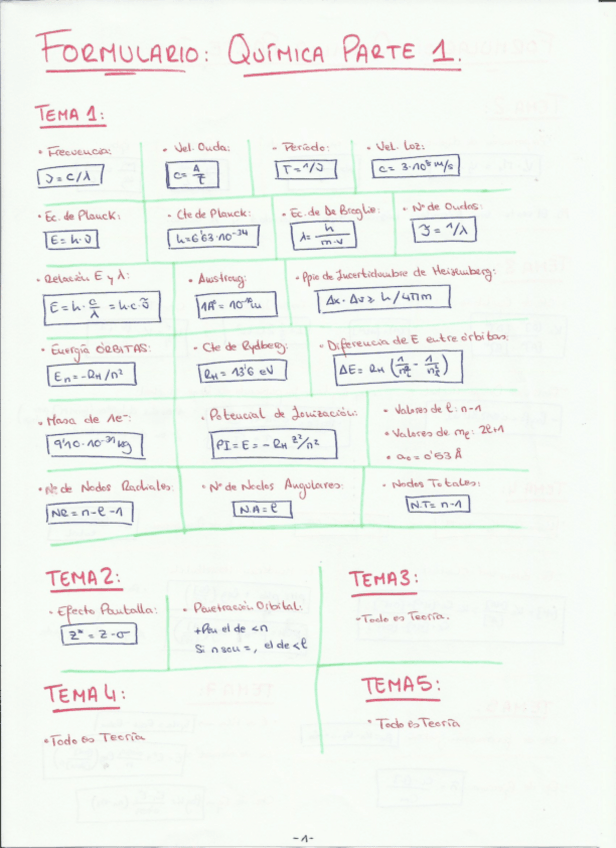 FORMULARIO: QUÍMICA PARTE 1.
TEMA 1:
• Frecuencia:
ν = c/λ
• Vel. Onda:
c = λ/τ
- Período:
T = 1/ν
• Vel. Luz:
c = 3·10⁸ m/s
• Ec. de Planck:
E = h·ν
• Cte de Planck:
h = 6'63·10⁻³⁴
• Ec. de De Broglie:
λ = h/m·v
• Nº de Ondas:
ν̃ = 1/λ
• Relación E y λ:
E = h· c/λ = h·c·ν̃
• Amstrong:
1Å = 10⁻¹⁰m
• Ppio de Incertidumbre de Heisemberg:
Δx · Δv ≥ h/4πm
• Energía ÓRBITAS:
Eₙ = -R_H/n²
• Cte de Rydberg:
R_H = 13'6 eV
• Diferencia de E entre órbitas:
ΔE = R_H (1/n² - 1/n²)
• Masa de 1e⁻:
9'10·10⁻³¹ kg
• Potencial de Ionización:
PI = E = -R_H Z²/n²
• Valores de l: n-1
• Valores de mₗ: 2l+1
• a₀ = 0'53 Å
• Nº de Nodos Radiales:
NR = n-l-1
• Nº de Nodos Angulares:
N.A = l
• Nodos Totales:
N.T = n-1
TEMA 2:
• Efecto Pantalla:
Z* = Z-σ
• Penetración Orbital:
+Pen el de <n
Si n son =, el de <l
TEMA 3:
-Todo es Teoría.
TEMA 4:
• Todo es Teoría
TEMA 5:
• Todo es Teoría
-1-